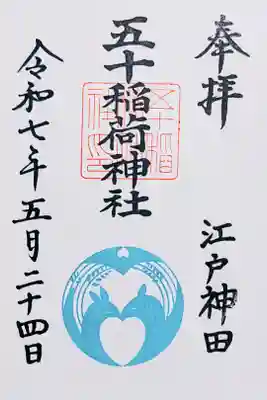 奉拝
江戸神田
五十稲荷神社
令和七年五月二十四日